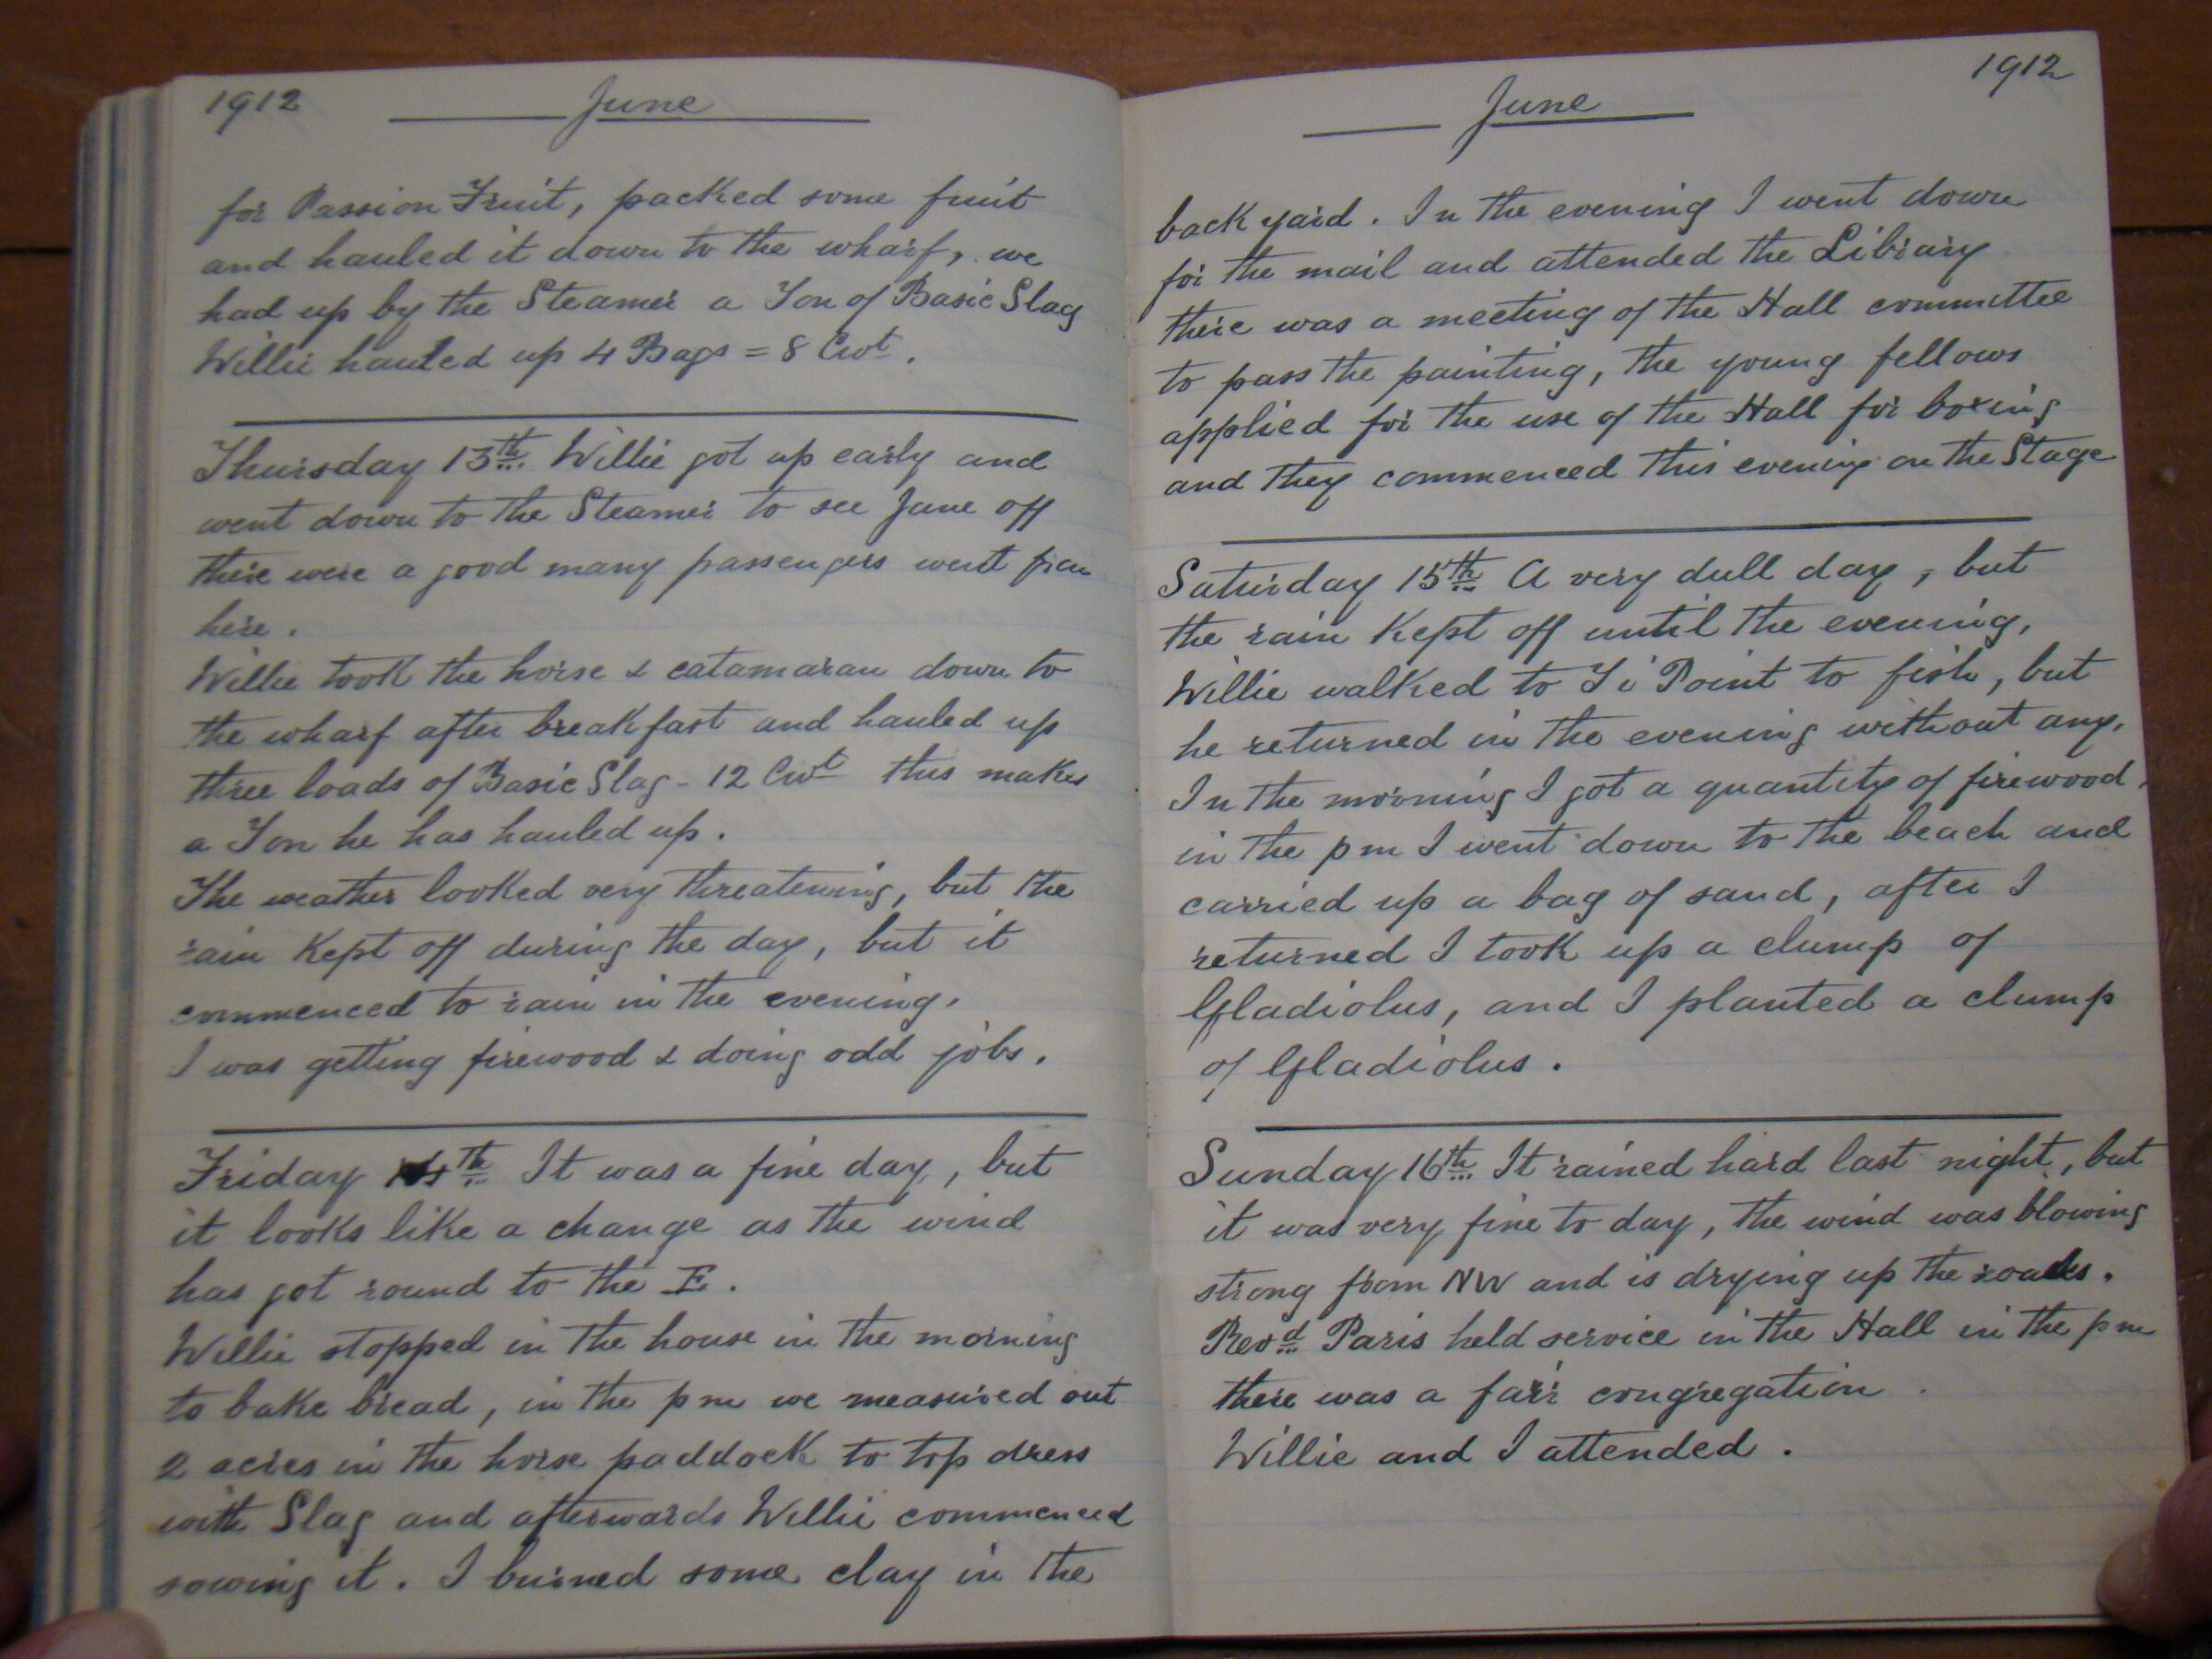 1912
June
for Passion Fruit, packed some fruit
and hauled it down to the wharf, we
had up by the Steamer a Ton of Basic Slag
Willie hauled up 4 Bags = 8 Cwt.
Thursday 13th Willie got up early and
went down to the Steamer to see Jane off
there were a good many passengers went from
here.
Willie took the horse & catamaran down to
the wharf after breakfast and hauled up
three loads of Basic Slag - 12 Cwt this makes
a Ton he has hauled up.
The weather looked very threatening, but the
rain Kept off during the day, but it
commenced to rain in the evening.
I was getting firewood & doing odd jobs.
Friday 14th It was a fine day, but
it looks like a change as the wind
has got round to the E.
Willie stopped in the house in the morning
to bake bread, in the pm we measured out
2 acres in the horse paddock to top dress
with Slag and afterwards Willie commenced
sowing it. I burned some clay in the
1912
June
back yard. In the evening I went down
for the mail and attended the Library
there was a meeting of the Hall committee
to pass the painting, the young fellows
applied for the use of the Hall for boxing
and they commenced this evening on the Stage
Saturday 15th A very dull day, but
the rain Kept off until the evening,
Willie walked to Ti Point to fish, but
he returned in the evening without any.
In the morning I got a quantity of firewood,
in the pm I went down to the beach and
carried up a bag of sand, after I
returned I took up a clump of
Gladiolus, and I planted a clump
of Gladiolus.
Sunday 16th It rained hard last night, but
it was very fine to day, the wind was blowing
strong from NW and is drying up the roads.
Revd Paris held service in the Hall in the pm
there was a fair congregation
Willie and I attended.